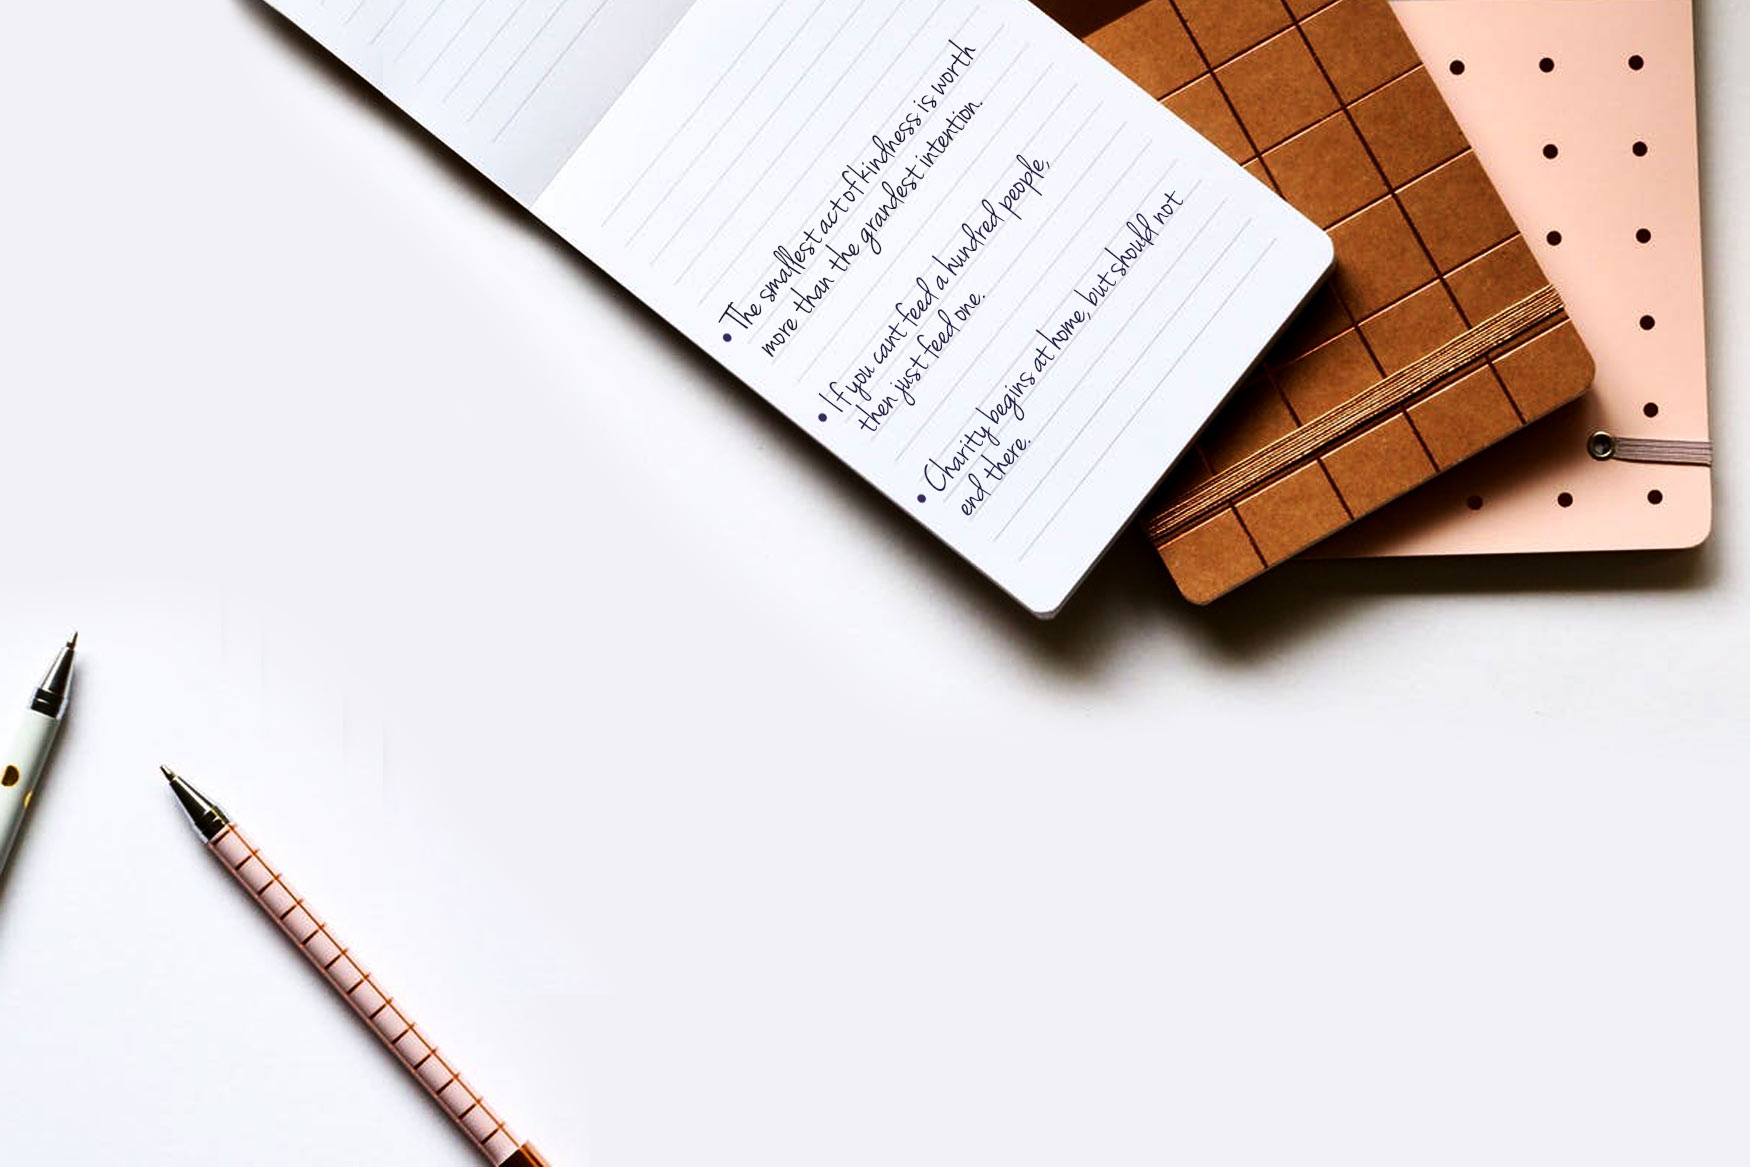 • The smallest act of kindness is worth
more than the grandest intention.
• If you cant feed a hundred people,
then just feed one.
• Charity begins at home, but should not
end there.